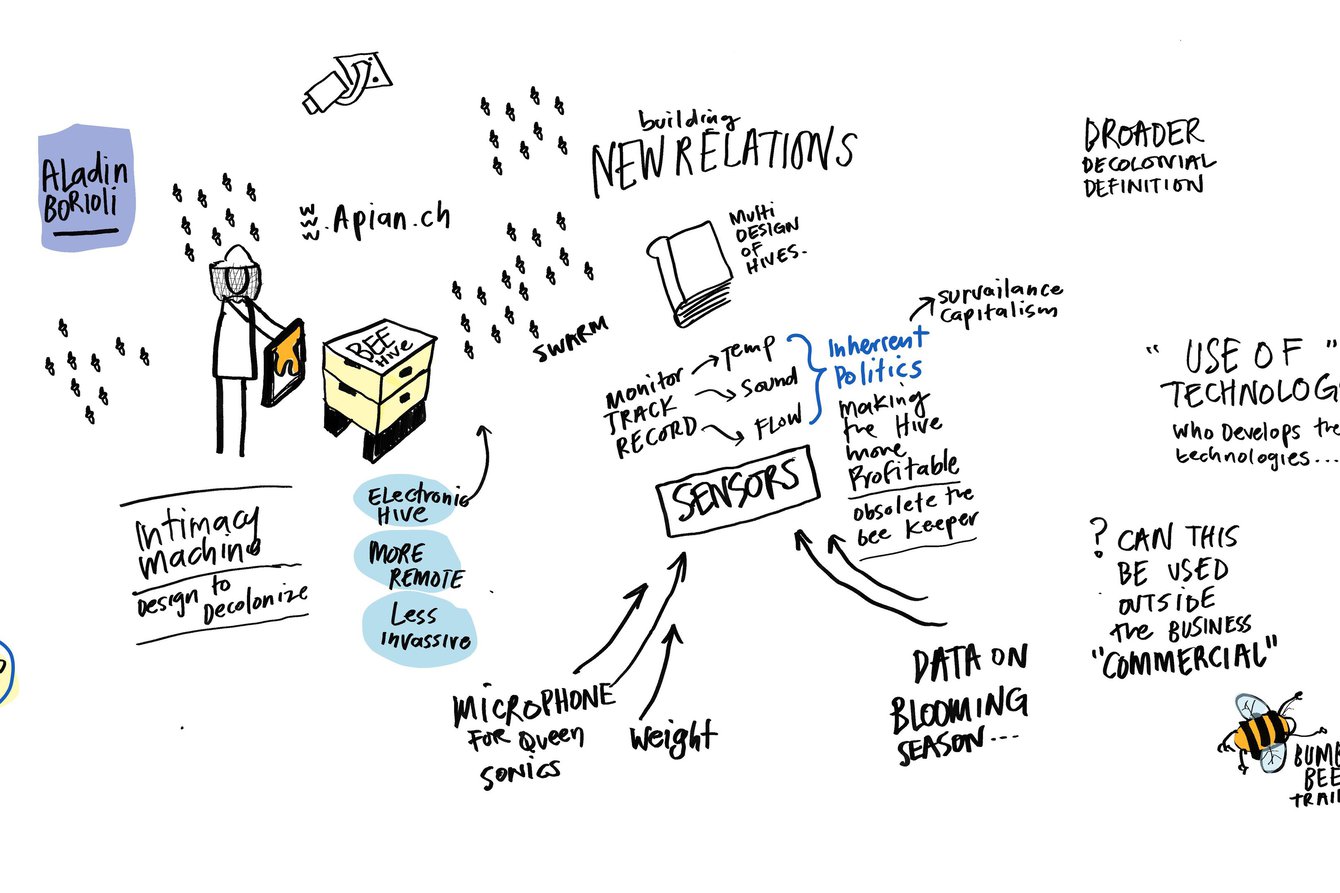 ALadin
BORIOLI
www.Apian.ch
BEE
Hive
SWARM
building
NEW RELATIONS
Multi
DESIGN
OF
HIVES.
Monitor
TRACK
RECORD
Temp
Sound
FLOW
Inherrent
Politics
survailance
Capitalism
making
the Hive
more
Profitable
obsolete the
bee keeper
SENSORS
Intimacy
machine
Design to
Decolonize
Electronic
HIVE
MORE
REMOTE
Less
invassive
MICROPHONE
FOR Queen
sonics
Weight
DATA ON
BLOOMING
SEASON...
BROADER
DECOLONIAL
DEFINITION
" USE OF "
TECHNOLOG
Who Develops the
technologies...
? CAN THIS
BE USED
OUTSIDE
the BUSINESS
"COMMERCIAL"
BUMB
BEE
TRAI